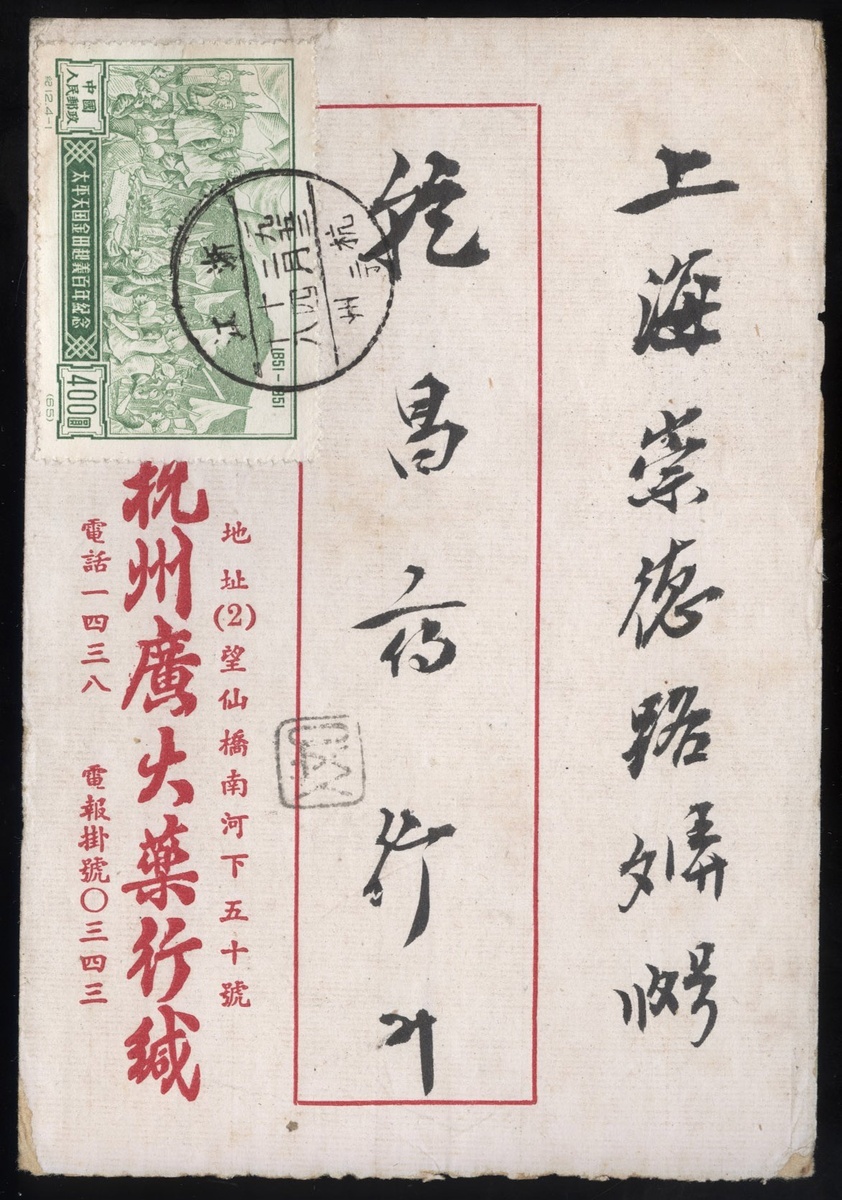 上海崇德路弄号
乾昌药行
地址(2)望仙橋南河下五十號
杭州廣大藥行緘
電話一四三八 電報掛號〇三四三
中國
人民郵政
太平天国金田起義百年紀念
400圓
1851-1951
紀12.4-1
(65)
浙江
杭州